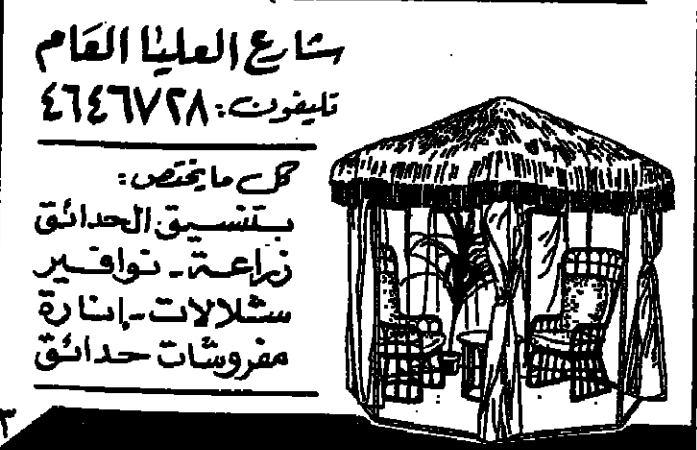 شارع العليا العام
تليفون: ٤٦٤٦٧٢٨
كل ما يختص:
بتنسيق الحدائق
زراعة - نوافير
شلالات - إنارة
مفروشات حدائق
٣